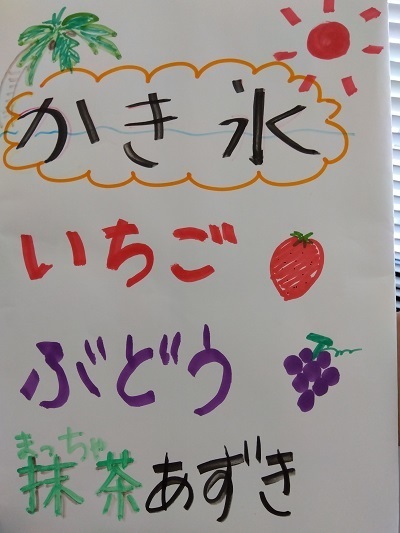 かき氷
いちご
ぶどう
まっちゃ
抹茶あずき